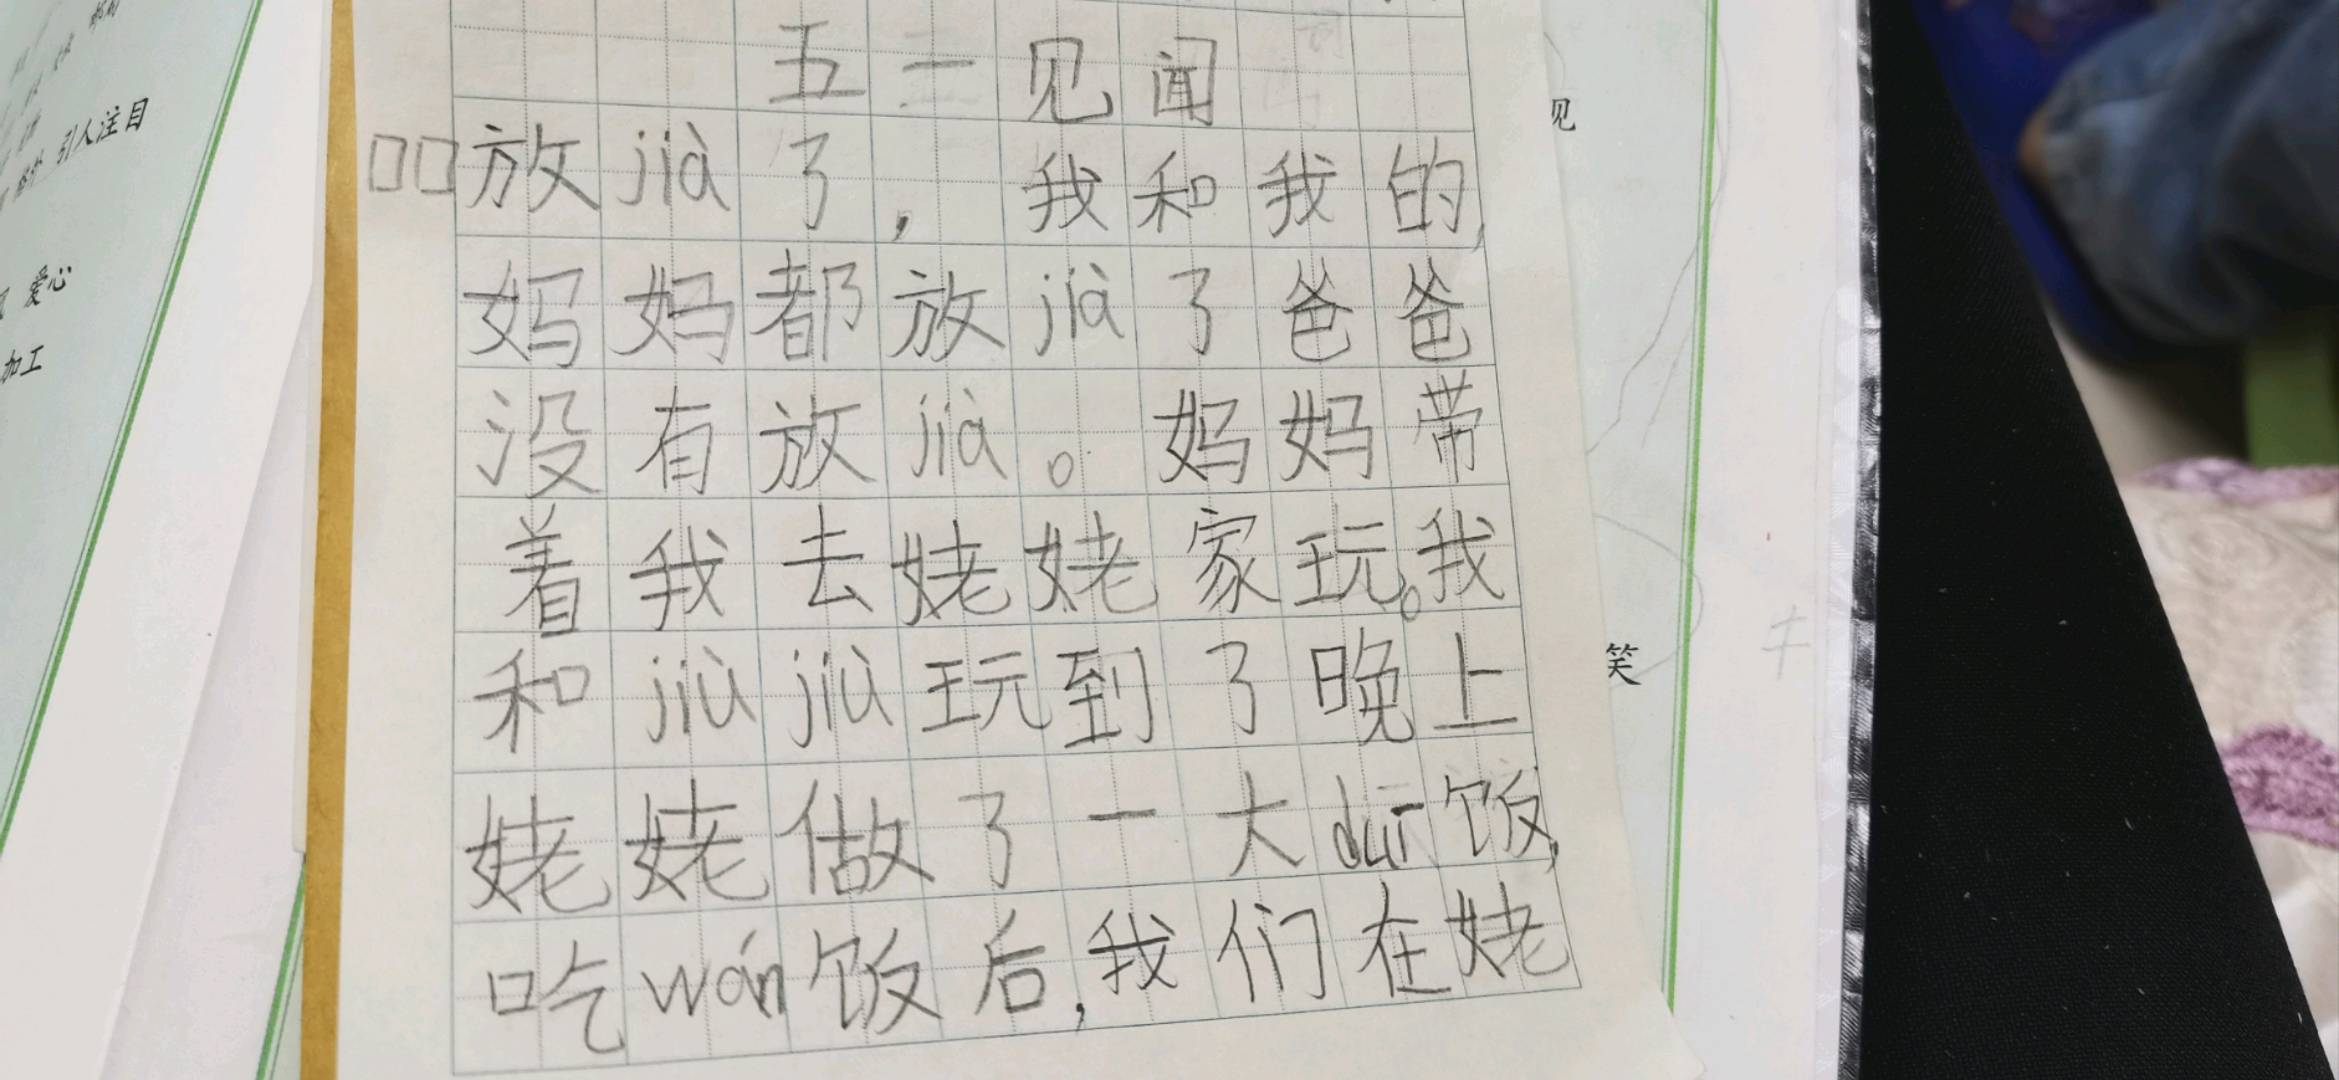 五一见闻
放jià了，我和我的，
妈妈都放jià了爸爸
没有放jià。妈妈带
着我去姥姥家玩。我
和jiùjiù玩到了晚上
姥姥做了一大duī饭，
吃wán饭后，我们在姥
引人注目
爱心
加工
见
笑